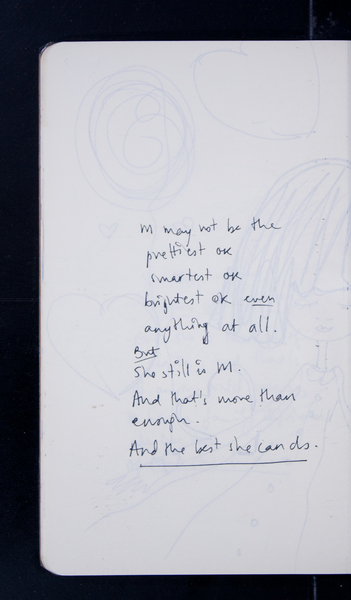 M may not be the
prettiest or
smartest or
brightest or even
anything at all.
But
She still is M.
And that's more than
enough.
And the best she can do.